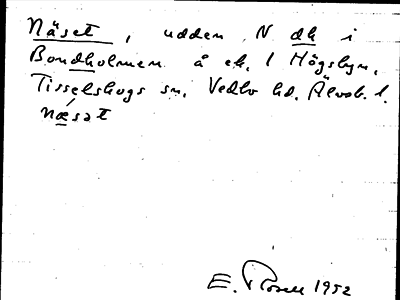 Näset, udden N dh i
Bondholmen å ek. 1 Högsbyn,
Tisselskogs sn, Vedbo hd. Älvsb. l.
nǽsət
E. Rosell 1952